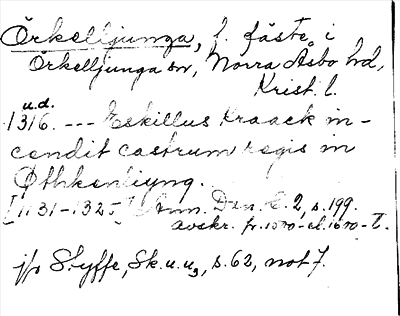 Örkelljunga, l. fäste i
Örkelljunga sn, Norra Åsbo hd,
Krist. l.
u.d.
1316. --- Eskillus Kraack in-
cendit castrum regis in
Øthkenliyng.
[1131-1325] Ann. Dan. 2, s. 199.
avskr. fr.
jfr Styffe, Sk. u. u3, s. 62, not 7.